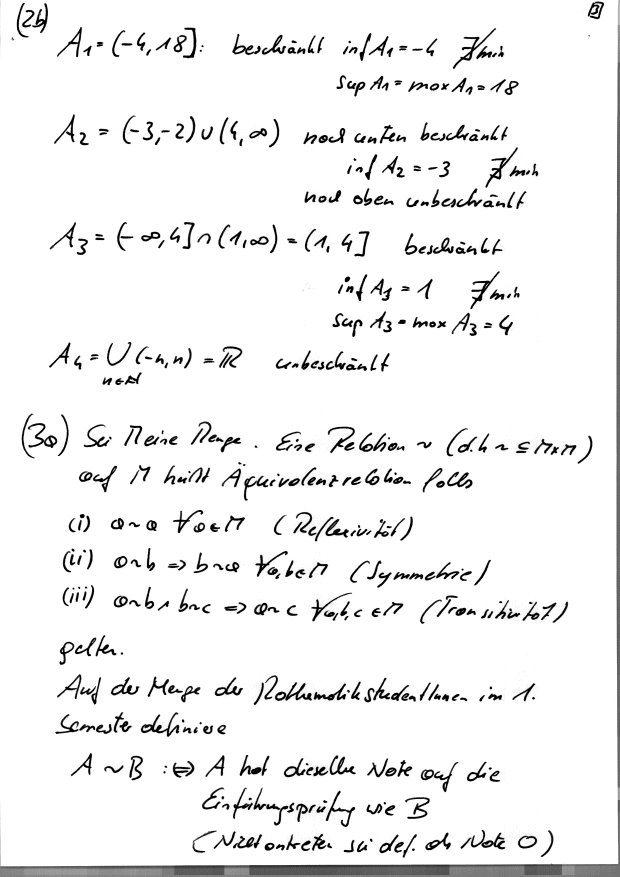 (2b)
3
A₁ = (-4, 18]: beschränkt inf A₁ = -4 ∄ min
sup A₁ = max A₁ = 18
A₂ = (-3,-2) ∪ (4, ∞) nach unten beschränkt
inf A₂ = -3 ∄ min
nach oben unbeschränkt
A₃ = (-∞, 4] ∩ (1, ∞) = (1, 4] beschränkt
inf A₃ = 1 ∄ min
sup A₃ = max A₃ = 4
A₄ = ⋃ (-n, n) = ℝ unbeschränkt
n ∈ ℕ
(3a) Sei M eine Menge. Eine Relation ~ (d.h ~ ⊆ M×M)
auf M heißt Äquivalenzrelation falls
(i) a~a ∀a∈M (Reflexivität)
(ii) a~b ⇒ b~a ∀a,b∈M (Symmetrie)
(iii) a~b ∧ b~c ⇒ a~c ∀a,b,c ∈ M (Transitivität)
gelten.
Auf der Menge der MathematikstudentInnen im 1.
Semester definiere
A ~ B :⇔ A hat dieselbe Note auf die
Einführungsprüfung wie B
(Nichtantreten sei def. als Note 0)